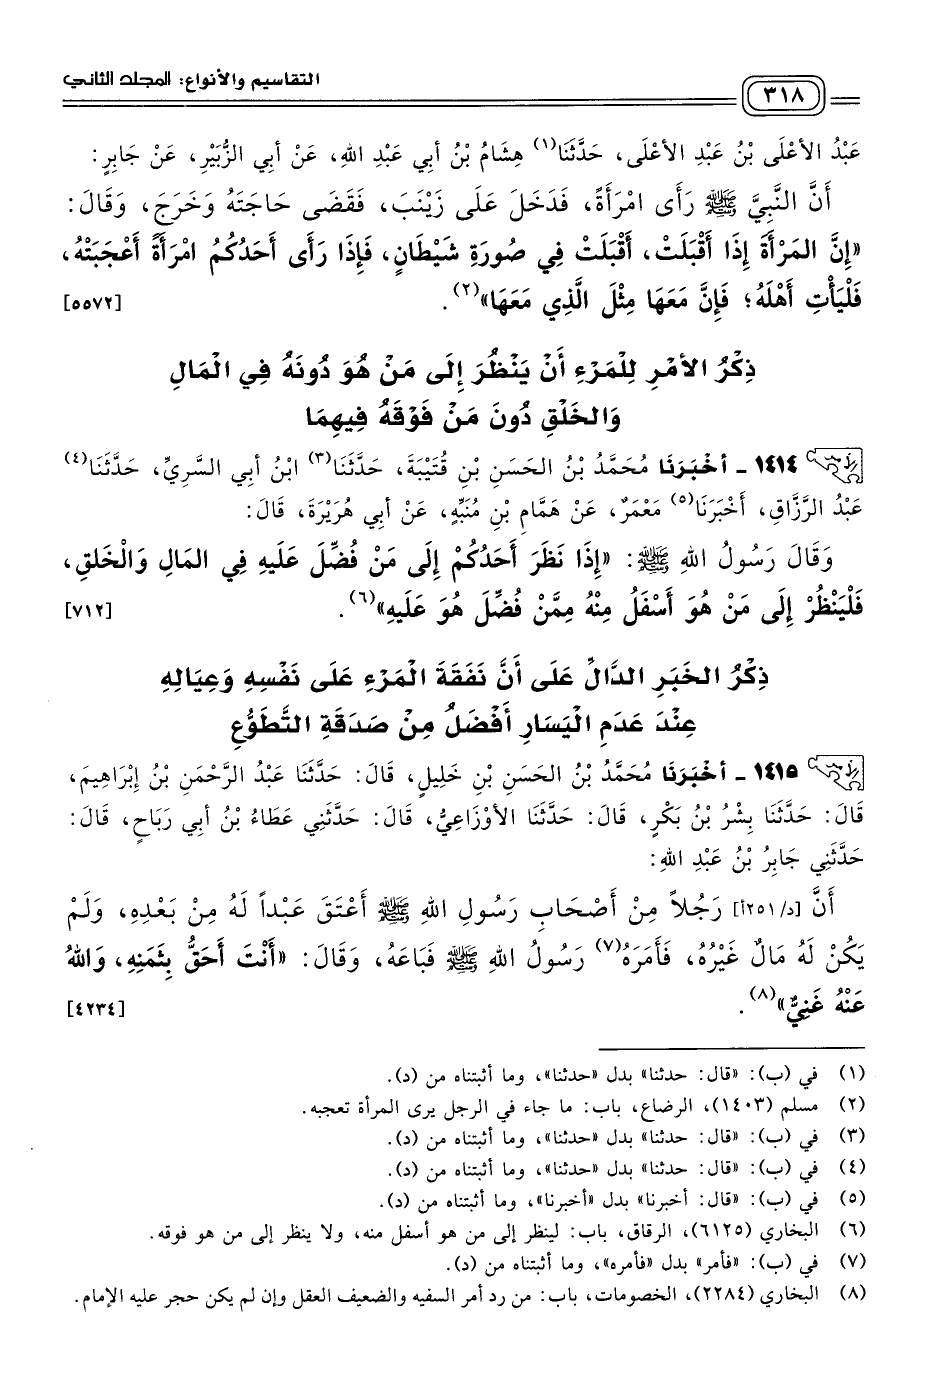 التقاسيم والأنواع: المجلد الثاني
٣١٨
عَبْدُ الأَعْلَى بْنُ عَبْدِ الأَعْلَى، حَدَّثَنَا(١) هِشَامُ بْنُ أَبِي عَبْدِ اللهِ، عَنْ أَبِي الزُّبَيْرِ، عَنْ جَابِرٍ:
أَنَّ النَّبِيَّ ﷺ رَأَى امْرَأَةً، فَدَخَلَ عَلَى زَيْنَبَ، فَقَضَى حَاجَتَهُ وَخَرَجَ، وَقَالَ:
«إِنَّ المَرْأَةَ إِذَا أَقْبَلَتْ، أَقْبَلَتْ فِي صُورَةِ شَيْطَانٍ، فَإِذَا رَأَى أَحَدُكُمُ امْرَأَةً أَعْجَبَتْهُ،
فَلْيَأْتِ أَهْلَهُ؛ فَإِنَّ مَعَهَا مِثْلَ الَّذِي مَعَهَا»(٢). [٥٥٧٢]
ذِكْرُ الأَمْرِ لِلْمَرْءِ أَنْ يَنْظُرَ إِلَى مَنْ هُوَ دُونَهُ فِي الْمَالِ
وَالخَلْقِ دُونَ مَنْ فَوْقَهُ فِيهِمَا
١٤١٤ - أَخْبَرَنَا مُحَمَّدُ بْنُ الحَسَنِ بْنِ قُتَيْبَةَ، حَدَّثَنَا(٣) ابْنُ أَبِي السَّرِيِّ، حَدَّثَنَا(٤)
عَبْدُ الرَّزَّاقِ، أَخْبَرَنَا(٥) مَعْمَرٌ، عَنْ هَمَّامِ بْنِ مُنَبِّهٍ، عَنْ أَبِي هُرَيْرَةَ، قَالَ:
وَقَالَ رَسُولُ اللهِ ﷺ: «إِذَا نَظَرَ أَحَدُكُمْ إِلَى مَنْ فُضِّلَ عَلَيهِ فِي المَالِ وَالْخَلقِ،
فَلْيَنْظُرْ إِلَى مَنْ هُوَ أَسْفَلُ مِنْهُ مِمَّنْ فُضِّلَ هُوَ عَلَيهِ»(٦). [٧١٢]
ذِكْرُ الخَبَرِ الدَّالِّ عَلَى أَنَّ نَفَقَةَ الْمَرْءِ عَلَى نَفْسِهِ وَعِيَالِهِ
عِنْدَ عَدَمِ الْيَسَارِ أَفْضَلُ مِنْ صَدَقَةِ التَّطَوُّعِ
١٤١٥ - أَخْبَرَنَا مُحَمَّدُ بْنُ الحَسَنِ بْنِ خَلِيلٍ، قَالَ: حَدَّثَنَا عَبْدُ الرَّحْمَنِ بْنُ إِبْرَاهِيمَ،
قَالَ: حَدَّثَنَا بِشْرُ بْنُ بَكْرٍ، قَالَ: حَدَّثَنَا الأَوْزَاعِيُّ، قَالَ: حَدَّثَنِي عَطَاءُ بْنُ أَبِي رَبَاحٍ، قَالَ:
حَدَّثَنِي جَابِرُ بْنُ عَبْدِ اللهِ:
أَنَّ [د/٢٥١أ] رَجُلاً مِنْ أَصْحَابِ رَسُولِ اللهِ ﷺ أَعْتَقَ عَبْداً لَهُ مِنْ بَعْدِهِ، وَلَمْ
يَكُنْ لَهُ مَالٌ غَيْرُهُ، فَأَمَرَهُ(٧) رَسُولُ اللهِ ﷺ فَبَاعَهُ، وَقَالَ: «أَنْتَ أَحَقُّ بِثَمَنِهِ، وَاللهُ
عَنْهُ غَنِيٌّ»(٨). [٤٢٣٤]
(١) في (ب): «قال: حدثنا» بدل «حدثنا»، وما أثبتناه من (د).
(٢) مسلم (١٤٠٣)، الرضاع، باب: ما جاء في الرجل يرى المرأة تعجبه.
(٣) في (ب): «قال: حدثنا» بدل «حدثنا»، وما أثبتناه من (د).
(٤) في (ب): «قال: حدثنا» بدل «حدثنا»، وما أثبتناه من (د).
(٥) في (ب): «قال: أخبرنا» بدل «أخبرنا»، وما أثبتناه من (د).
(٦) البخاري (٦١٢٥)، الرقاق، باب: لينظر إلى من هو أسفل منه، ولا ينظر إلى من هو فوقه.
(٧) في (ب): «فأمر» بدل «فأمره»، وما أثبتناه من (د).
(٨) البخاري (٢٢٨٤)، الخصومات، باب: من رد أمر السفيه والضعيف العقل وإن لم يكن حجر عليه الإمام.